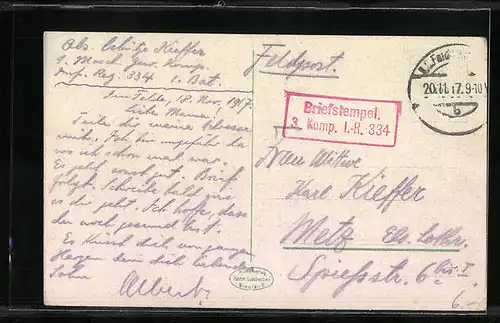 Obs. Schütze Kieffer
1. Masch. Gew. Komp.
Inf. Reg. 334 1. Bat.
Im Felde, 18. Nov. 1917.
Liebe Mama.
meine Adresse
mit. Ich bin ungefähr da
wo ich schon mal war.
Es geht sonst gut. Brief
folgt. Schreibe bald wie
es dir geht. Ich hoffe, dass
du noch gesund bist.
Es küsst dich von ganzem
Herzen dein dich liebender
Sohn
Albert.
Feldpost.
20.11.17.9-10V
b
Briefstempel.
3. Komp. I.-R. 334
Frau Witwe
Karl Kieffer
Metz Els. Lothr.
Spiessstr. 6 bis I
6.-